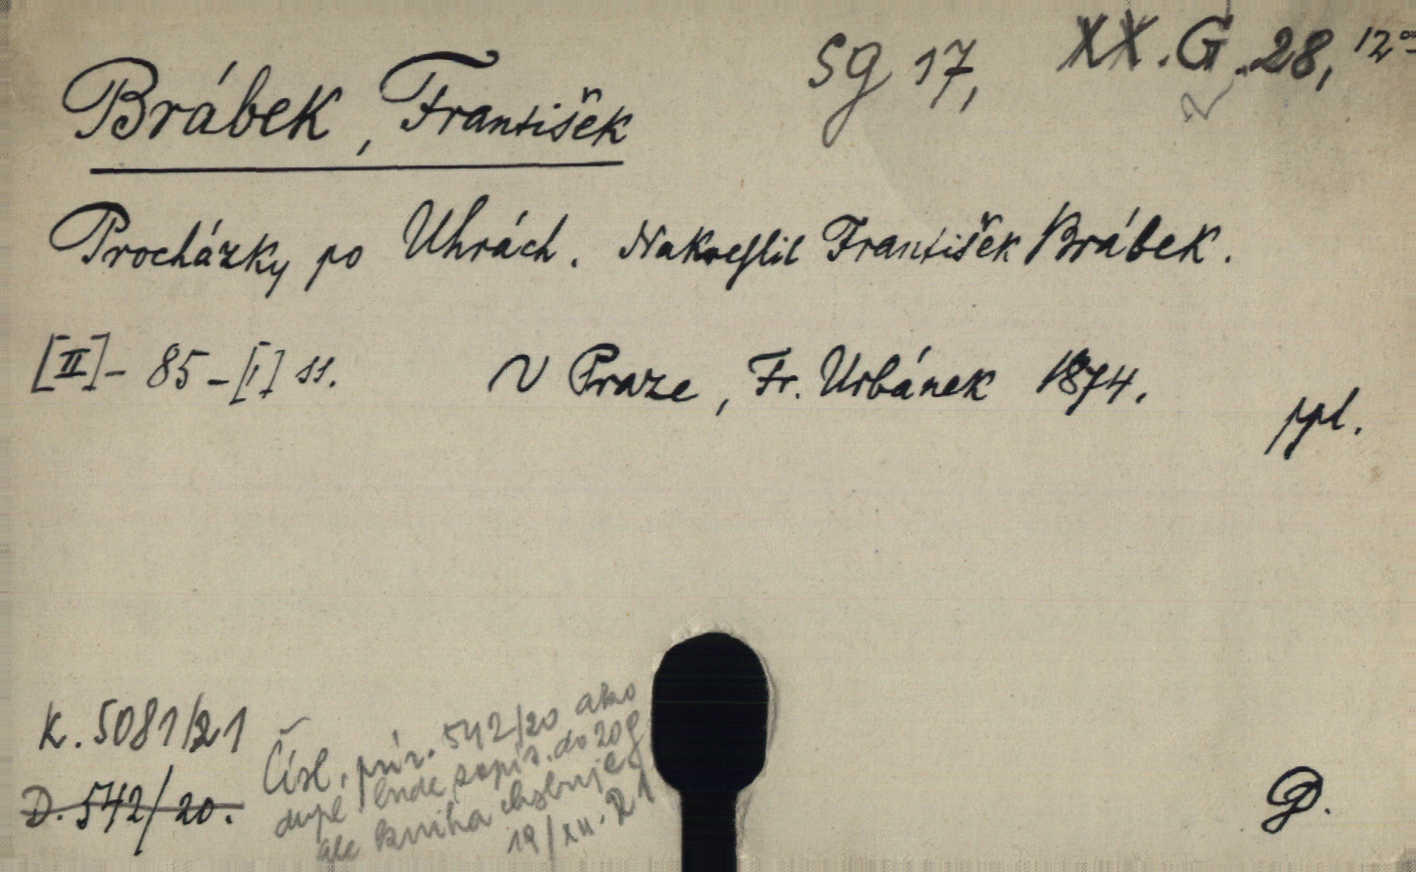 SG 17, XX.G.28, 12°
Brábek, František
Procházky po Uhrách. Nakreslil František Brábek.
[II]-85-[1] ss. V Praze, Fr. Urbánek 1874.
ppl.
K. 5081/21
D. 542/20.
Čísl. prír. 542/20 ako
dupl bude zapís. do 20g
ale kniha chybuje
19/XII. 21
P.